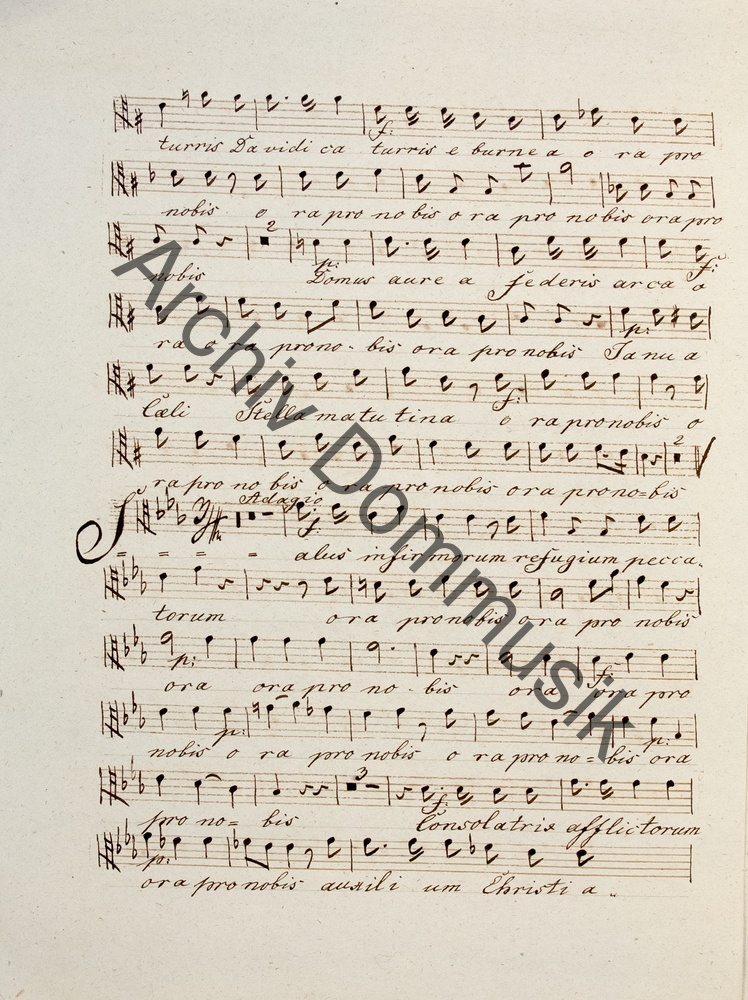 f:
turris Davidi ca turris e burne a o ra pro
nobis o ra pro no bis o ra pro no bis ora pro
2
p: f:
nobis Domus aure a federis arca o
p:
ra o ra prono- bis ora pro nobis Janu a
f:
Cæli Stella matu tina o ra pronobis o
2
rapro no bis o ra pro nobis ora prono=bis
Adagio
f:
S = = = = alus infirmorum refugium pecca-
torum ora pronobis ora pro nobis
p: f:
ora ora pro no - bis ora ora pro
p: p:
nobis o ra pro nobis o ra pro no = bis ora
3
f:
pro no= bis Consolatrix afflictorum
p:
ora pro nobis auxili um Christi a -
Archiv Dommusik